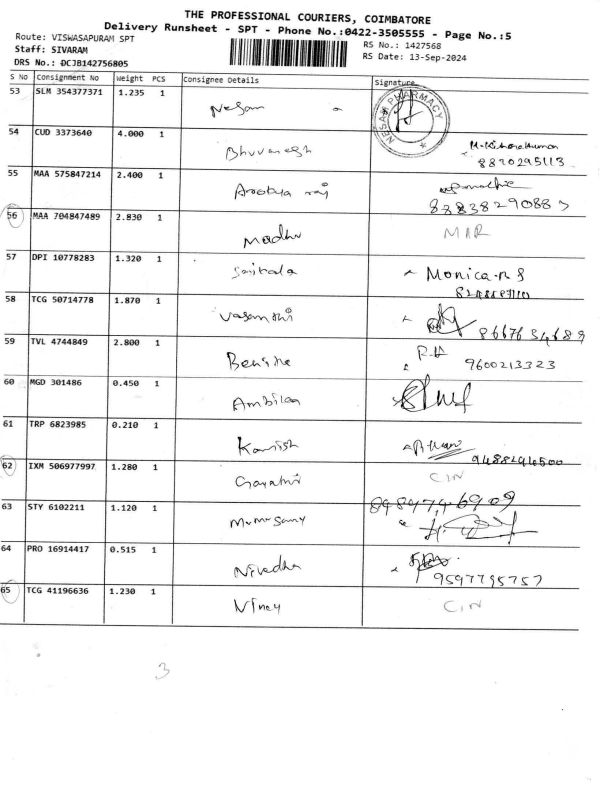 THE PROFESSIONAL COURIERS, COIMBATORE
Delivery Runsheet - SPT - Phone No.:0422-3505555 - Page No.:5
Route: VISWASAPURAM SPT
RS No.: 1427568
Staff: SIVARAM
RS Date: 13-Sep-2024
DRS No.: DCJB142756805
S No Consignment No Weight PCS Consignee Details Signature
53 SLM 354377371 1.235 1 Nesam
NESAM PHARMACY
54 CUD 3373640 4.000 1 Bhuvanesh
8820295113
55 MAA 575847214 2.400 1 Arokya raj
56 MAA 704847489 2.830 1 Madhu
57 DPI 10778283 1.320 1 Monica
58 TCG 50714778 1.870 1 Vasanthi 8667634689
59 TVL 4744849 2.800 1 9600213323
60 MGD 301486 0.450 1 Ambika
61 TRP 6823985 0.210 1 Kanish
62 IXM 506977997 1.280 1 Gayathri CIN
63 STY 6102211 1.120 1
64 PRO 16914417 0.515 1 Nivedha
9597795757
65 TCG 41196636 1.230 1 Vinay CIN
3